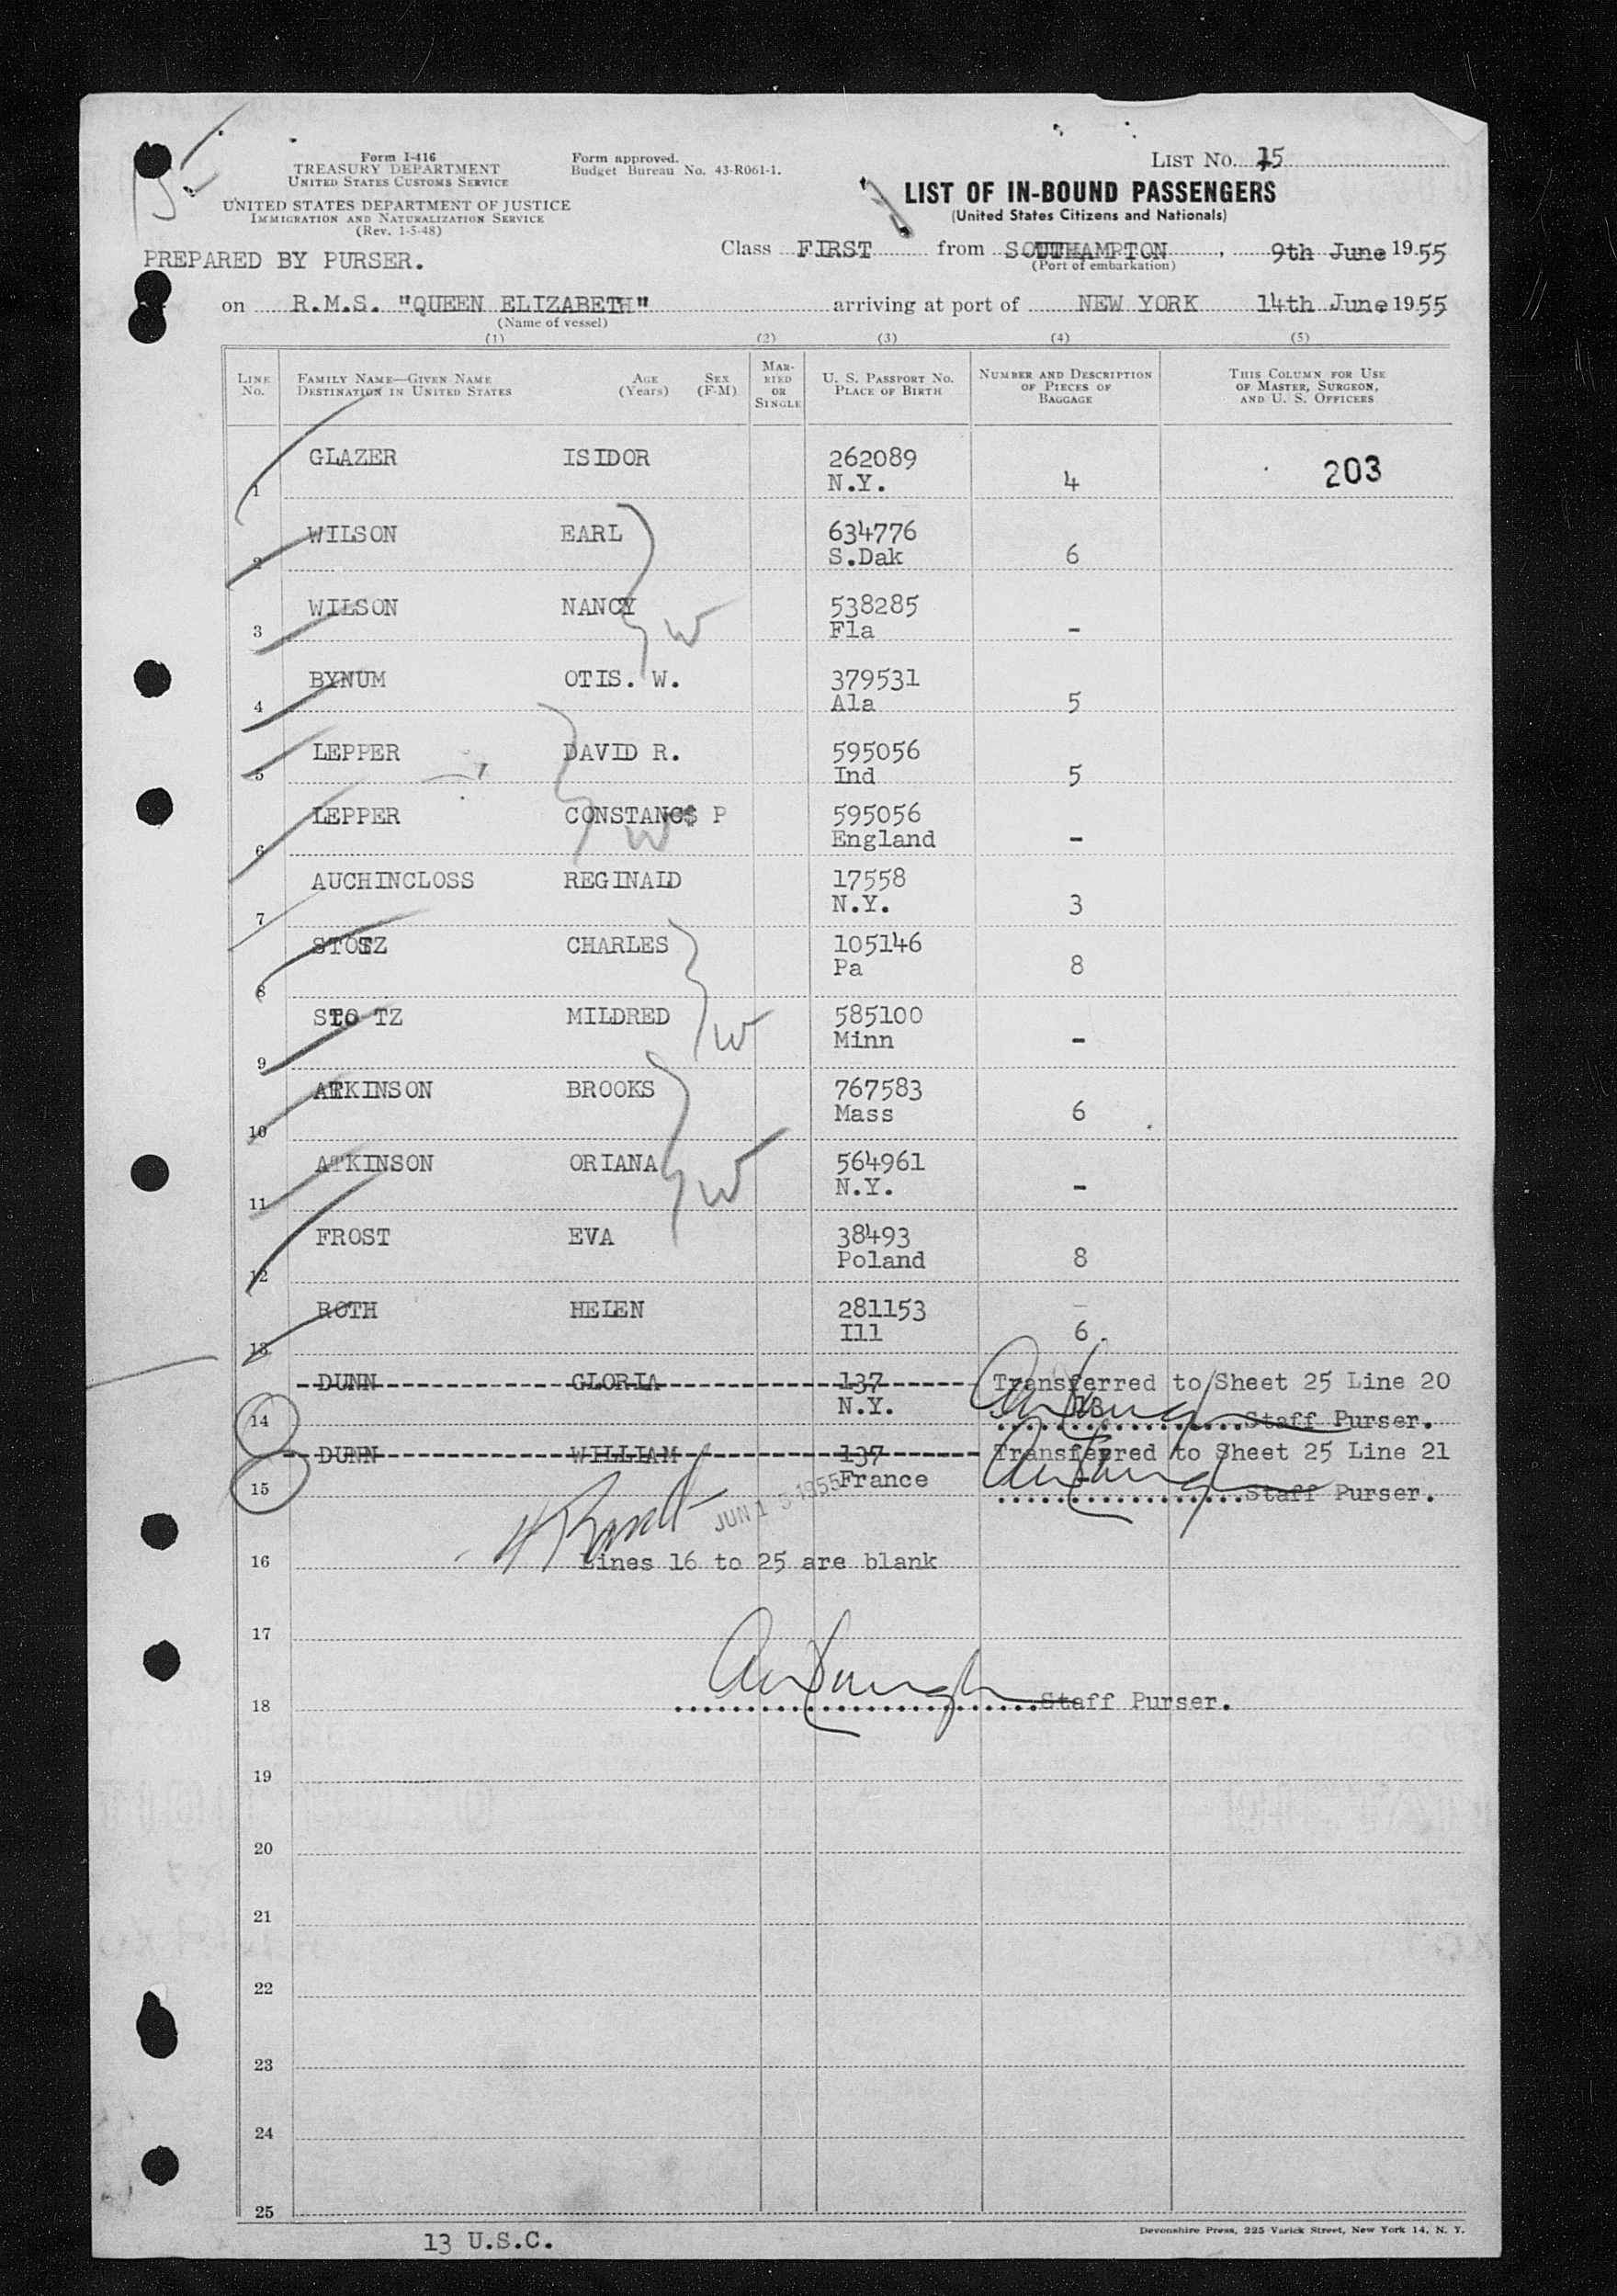 Form I-416
TREASURY DEPARTMENT
UNITED STATES CUSTOMS SERVICE
UNITED STATES DEPARTMENT OF JUSTICE
IMMIGRATION AND NATURALIZATION SERVICE
(Rev. 1-5-48)
Form approved.
Budget Bureau No. 43-R061-1.
LIST NO. 15
LIST OF IN-BOUND PASSENGERS
(United States Citizens and Nationals)
PREPARED BY PURSER.
Class FIRST from SOUTHAMPTON, 9th June 1955
(Port of embarkation)
on R.M.S. "QUEEN ELIZABETH" arriving at port of NEW YORK 14th June 1955
(Name of vessel)
(1) (2) (3) (4) (5)
LINE NO. FAMILY NAME—GIVEN NAME DESTINATION IN UNITED STATES AGE (Years) SEX (F-M) MARRIED OR SINGLE U. S. PASSPORT NO. PLACE OF BIRTH NUMBER AND DESCRIPTION OF PIECES OF BAGGAGE THIS COLUMN FOR USE OF MASTER, SURGEON, AND U. S. OFFICERS
GLAZER ISIDOR 262089 203
1 N.Y. 4
WILSON EARL 634776
2 S.Dak 6
WILSON NANCY 538285
3 W Fla -
BYNUM OTIS. W. 379531
4 Ala 5
LEPPER DAVID R. 595056
5 Ind 5
LEPPER CONSTANC$ P 595056
6 W England -
AUCHINCLOSS REGINALD 17558
7 N.Y. 3
STOTZ CHARLES 105146
8 Pa 8
STO TZ MILDRED 585100
9 W Minn -
ATKINSON BROOKS 767583
10 Mass 6
ATKINSON ORIANA 564961
11 W N.Y. -
FROST EVA 38493
12 Poland 8
ROTH HELEN 281153
13 Ill 6
DUNN GLORIA 137 Transferred to Sheet 25 Line 20
14 N.Y. Staff Purser.
DUNN WILLIAM 137 Transferred to Sheet 25 Line 21
15 France Staff Purser.
JUN 13 1955
16 Lines 16 to 25 are blank
17
18 Staff Purser.
19
20
21
22
23
24
25
Devonshire Press, 225 Varick Street, New York 14, N. Y.
13 U.S.C.